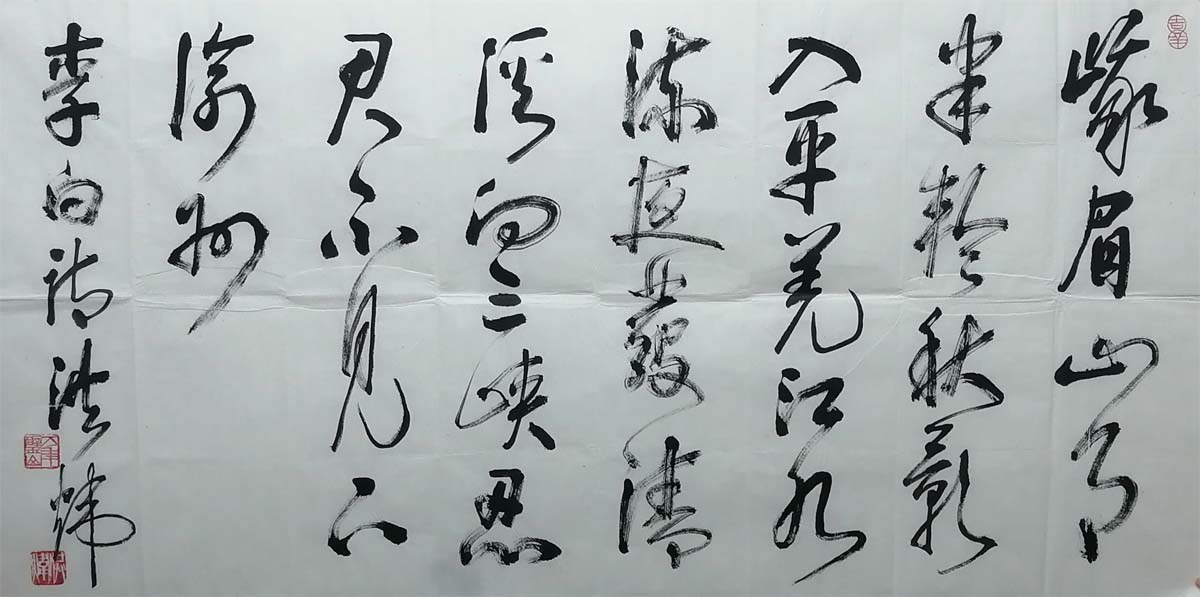 峨眉山月
半輪秋影
入平羌江水
流夜發清
溪向三峽思
君不見下
渝州
李白詩洪煒